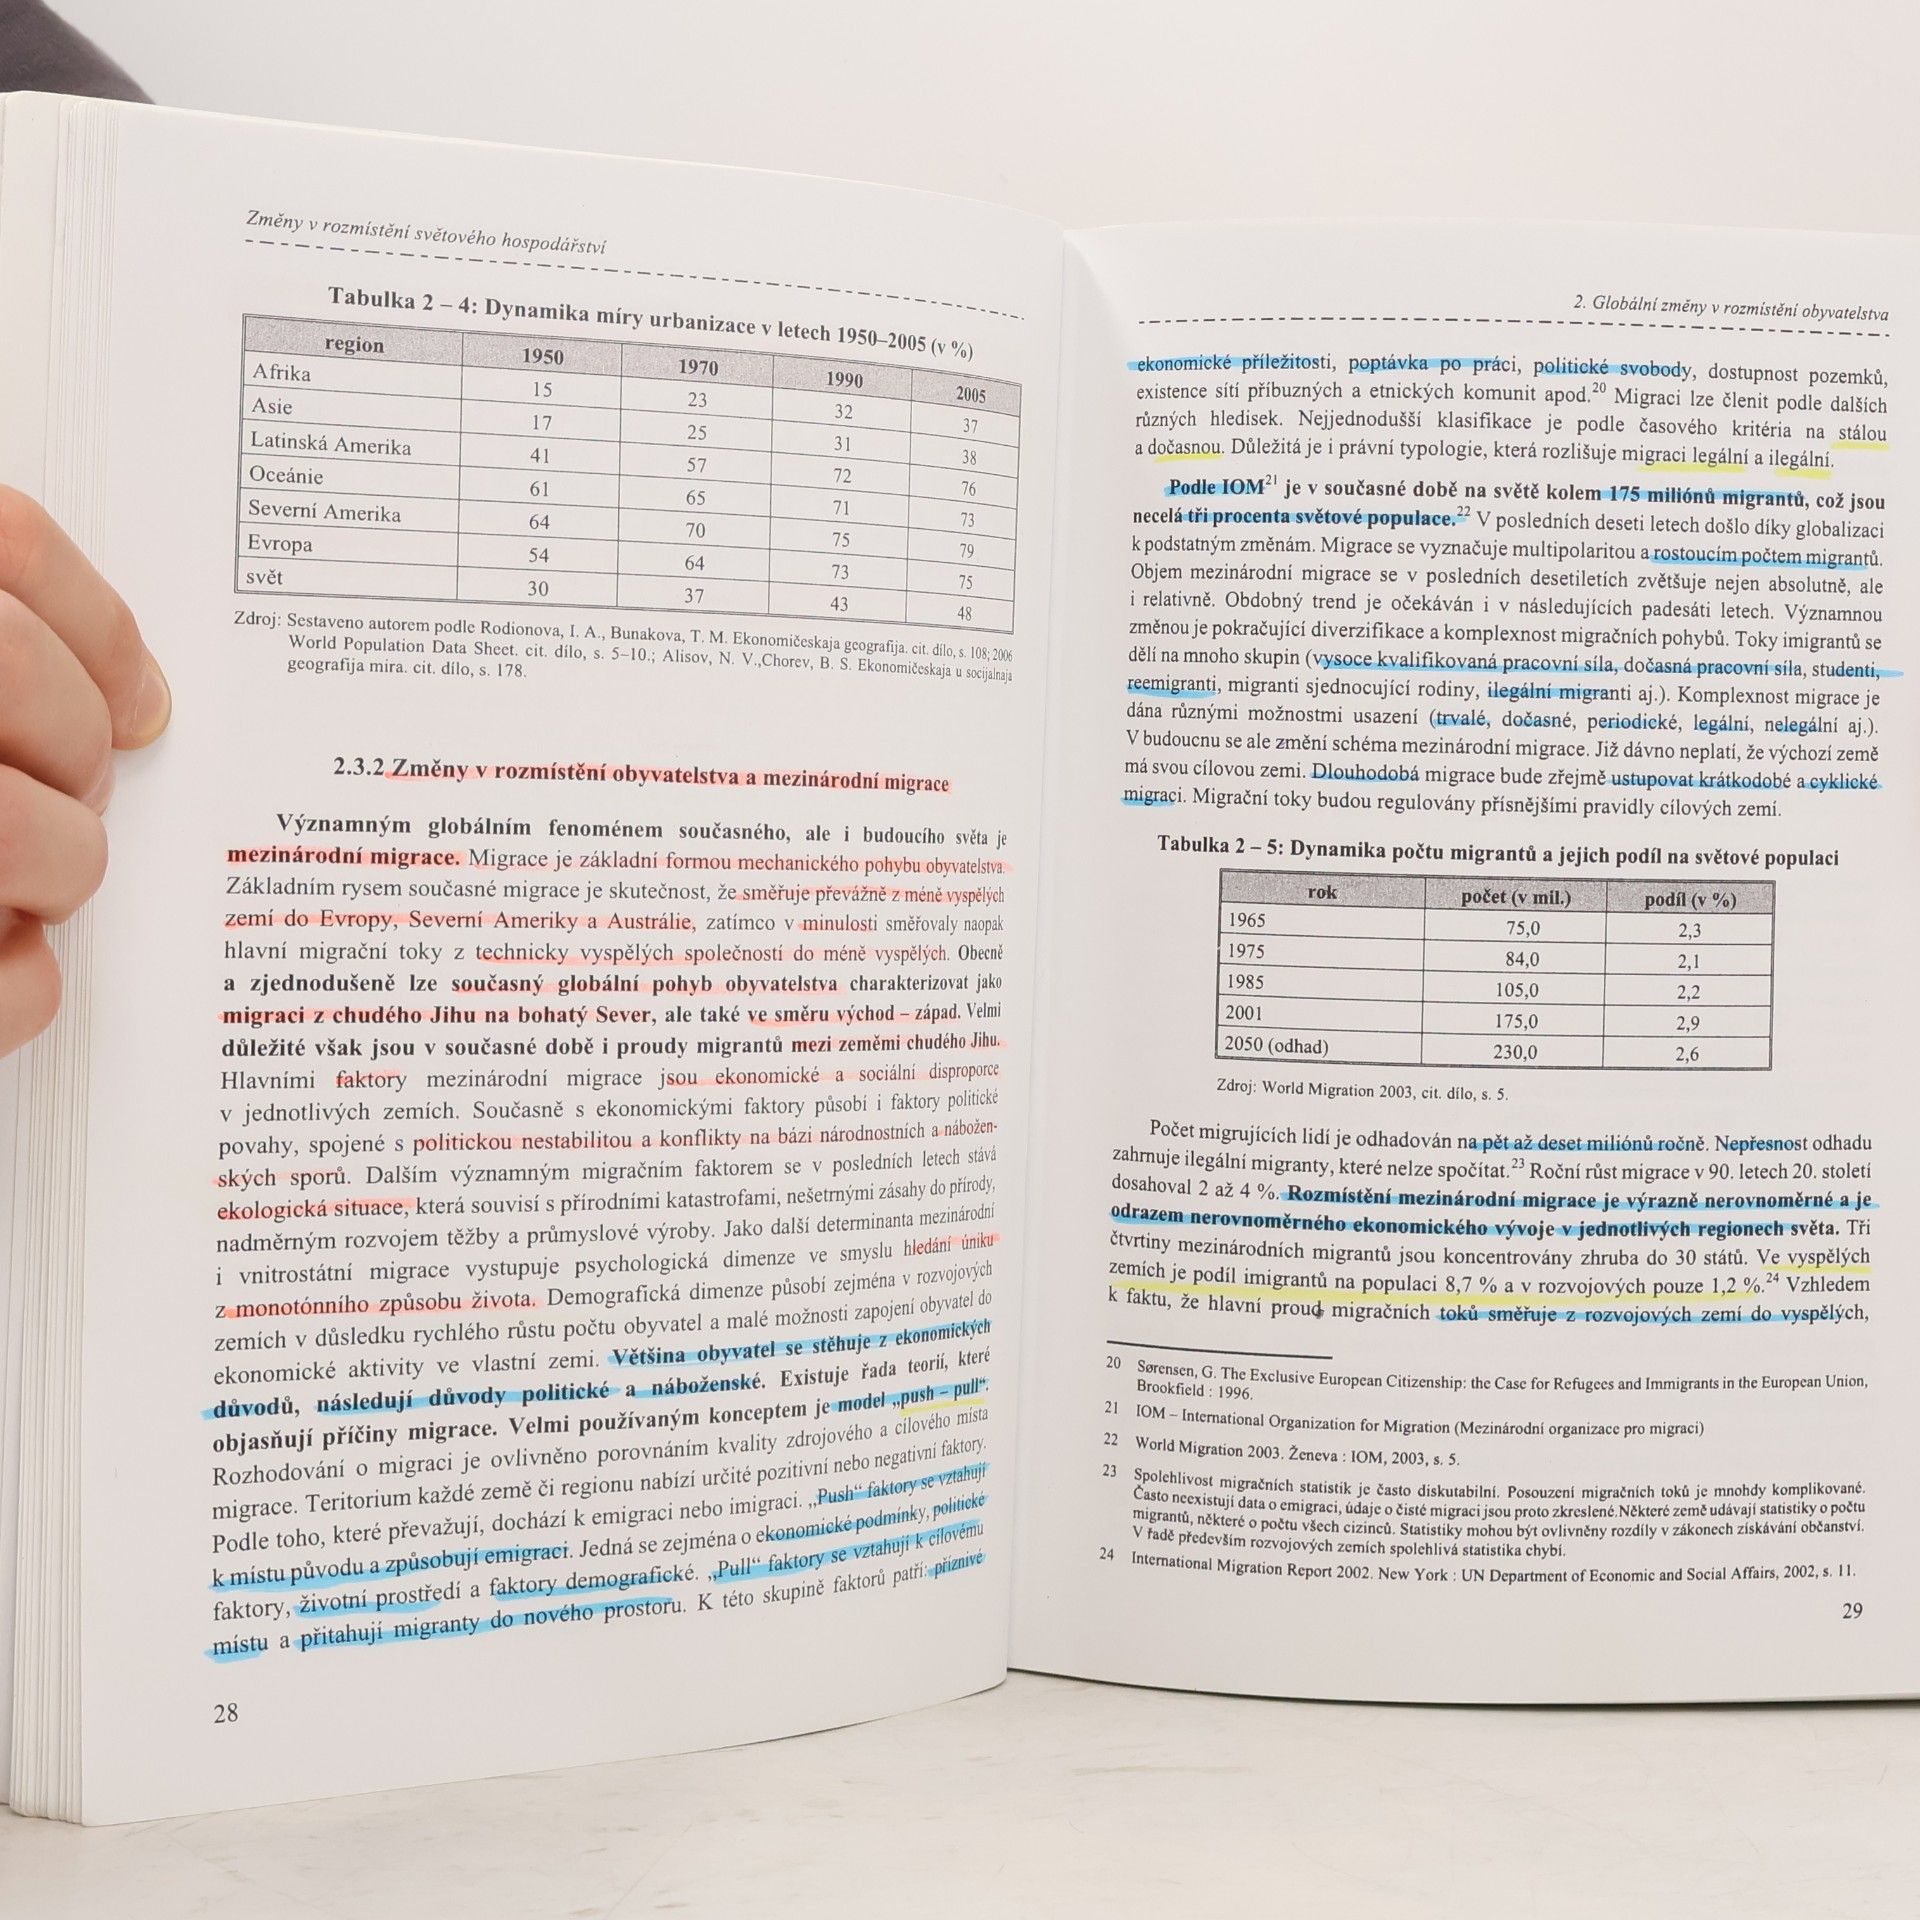 Změny v rozmístění světového hospodářství
Tabulka 2 – 4: Dynamika míry urbanizace v letech 1950–2005 (v %)
region 1950 1970 1990 2005
Afrika 15 23 32 37
Asie 17 25 31 38
Latinská Amerika 41 57 72 76
Oceánie 61 65 71 73
Severní Amerika 64 70 75 79
Evropa 54 64 73 75
svět 30 37 43 48
Zdroj: Sestaveno autorem podle Rodionova, I. A., Bunakova, T. M. Ekonomičeskaja geografija. cit. dílo, s. 108; 2006
World Population Data Sheet. cit. dílo, s. 5–10.; Alisov, N. V.,Chorev, B. S. Ekonomičeskaja u socijalnaja
geografija mira. cit. dílo, s. 178.
2.3.2 Změny v rozmístění obyvatelstva a mezinárodní migrace
Významným globálním fenoménem současného, ale i budoucího světa je
mezinárodní migrace. Migrace je základní formou mechanického pohybu obyvatelstva.
Základním rysem současné migrace je skutečnost, že směřuje převážně z méně vyspělých
zemí do Evropy, Severní Ameriky a Austrálie, zatímco v minulosti směřovaly naopak
hlavní migrační toky z technicky vyspělých společností do méně vyspělých. Obecně
a zjednodušeně lze současný globální pohyb obyvatelstva charakterizovat jako
migraci z chudého Jihu na bohatý Sever, ale také ve směru východ – západ. Velmi
důležité však jsou v současné době i proudy migrantů mezi zeměmi chudého Jihu.
Hlavními faktory mezinárodní migrace jsou ekonomické a sociální disproporce
v jednotlivých zemích. Současně s ekonomickými faktory působí i faktory politické
povahy, spojené s politickou nestabilitou a konflikty na bázi národnostních a nábožen-
ských sporů. Dalším významným migračním faktorem se v posledních letech stává
ekologická situace, která souvisí s přírodními katastrofami, nešetrnými zásahy do přírody,
nadměrným rozvojem těžby a průmyslové výroby. Jako další determinanta mezinárodní
i vnitrostátní migrace vystupuje psychologická dimenze ve smyslu hledání úniku
z monotónního způsobu života. Demografická dimenze působí zejména v rozvojových
zemích v důsledku rychlého růstu počtu obyvatel a malé možnosti zapojení obyvatel do
ekonomické aktivity ve vlastní zemi. Většina obyvatel se stěhuje z ekonomických
důvodů, následují důvody politické a náboženské. Existuje řada teorií, které
objasňují příčiny migrace. Velmi používaným konceptem je model „push – pull“.
Rozhodování o migraci je ovlivněno porovnáním kvality zdrojového a cílového místa
migrace. Teritorium každé země či regionu nabízí určité pozitivní nebo negativní faktory.
Podle toho, které převažují, dochází k emigraci nebo imigraci. „Push“ faktory se vztahují
k místu původu a způsobují emigraci. Jedná se zejména o ekonomické podmínky, politické
faktory, životní prostředí a faktory demografické. „Pull“ faktory se vztahují k cílovému
místu a přitahují migranty do nového prostoru. K této skupině faktorů patří: příznivé
28
2. Globální změny v rozmístění obyvatelstva
ekonomické příležitosti, poptávka po práci, politické svobody, dostupnost pozemků,
existence sítí příbuzných a etnických komunit apod.20 Migraci lze členit podle dalších
různých hledisek. Nejjednodušší klasifikace je podle časového kritéria na stálou
a dočasnou. Důležitá je i právní typologie, která rozlišuje migraci legální a ilegální.
Podle IOM21 je v současné době na světě kolem 175 miliónů migrantů, což jsou
necelá tři procenta světové populace.22 V posledních deseti letech došlo díky globalizaci
k podstatným změnám. Migrace se vyznačuje multipolaritou a rostoucím počtem migrantů.
Objem mezinárodní migrace se v posledních desetiletích zvětšuje nejen absolutně, ale
i relativně. Obdobný trend je očekáván i v následujících padesáti letech. Významnou
změnou je pokračující diverzifikace a komplexnost migračních pohybů. Toky imigrantů se
dělí na mnoho skupin (vysoce kvalifikovaná pracovní síla, dočasná pracovní síla, studenti,
reemigranti, migranti sjednocující rodiny, ilegální migranti aj.). Komplexnost migrace je
dána různými možnostmi usazení (trvalé, dočasné, periodické, legální, nelegální aj.).
V budoucnu se ale změní schéma mezinárodní migrace. Již dávno neplatí, že výchozí země
má svou cílovou zemi. Dlouhodobá migrace bude zřejmě ustupovat krátkodobé a cyklické
migraci. Migrační toky budou regulovány přísnějšími pravidly cílových zemí.
Tabulka 2 – 5: Dynamika počtu migrantů a jejich podíl na světové populaci
rok počet (v mil.) podíl (v %)
1965 75,0 2,3
1975 84,0 2,1
1985 105,0 2,2
2001 175,0 2,9
2050 (odhad) 230,0 2,6
Zdroj: World Migration 2003, cit. dílo, s. 5.
Počet migrujících lidí je odhadován na pět až deset miliónů ročně. Nepřesnost odhadu
zahrnuje ilegální migranty, které nelze spočítat.23 Roční růst migrace v 90. letech 20. století
dosahoval 2 až 4 %. Rozmístění mezinárodní migrace je výrazně nerovnoměrné a je
odrazem nerovnoměrného ekonomického vývoje v jednotlivých regionech světa. Tři
čtvrtiny mezinárodních migrantů jsou koncentrovány zhruba do 30 států. Ve vyspělých
zemích je podíl imigrantů na populaci 8,7 % a v rozvojových pouze 1,2 %.24 Vzhledem
k faktu, že hlavní proud migračních toků směřuje z rozvojových zemí do vyspělých,
20 Sørensen, G. The Exclusive European Citizenship: the Case for Refugees and Immigrants in the European Union,
Brookfield : 1996.
21 IOM – International Organization for Migration (Mezinárodní organizace pro migraci)
22 World Migration 2003. Ženeva : IOM, 2003, s. 5.
23 Spolehlivost migračních statistik je často diskutabilní. Posouzení migračních toků je mnohdy komplikované.
Často neexistují data o emigraci, údaje o čisté migraci jsou proto zkreslené.Některé země udávají statistiky o počtu
migrantů, některé o počtu všech cizinců. Statistiky mohou být ovlivněny rozdíly v zákonech získávání občanství.
V řadě především rozvojových zemích spolehlivá statistika chybí.
24 International Migration Report 2002. New York : UN Department of Economic and Social Affairs, 2002, s. 11.
29